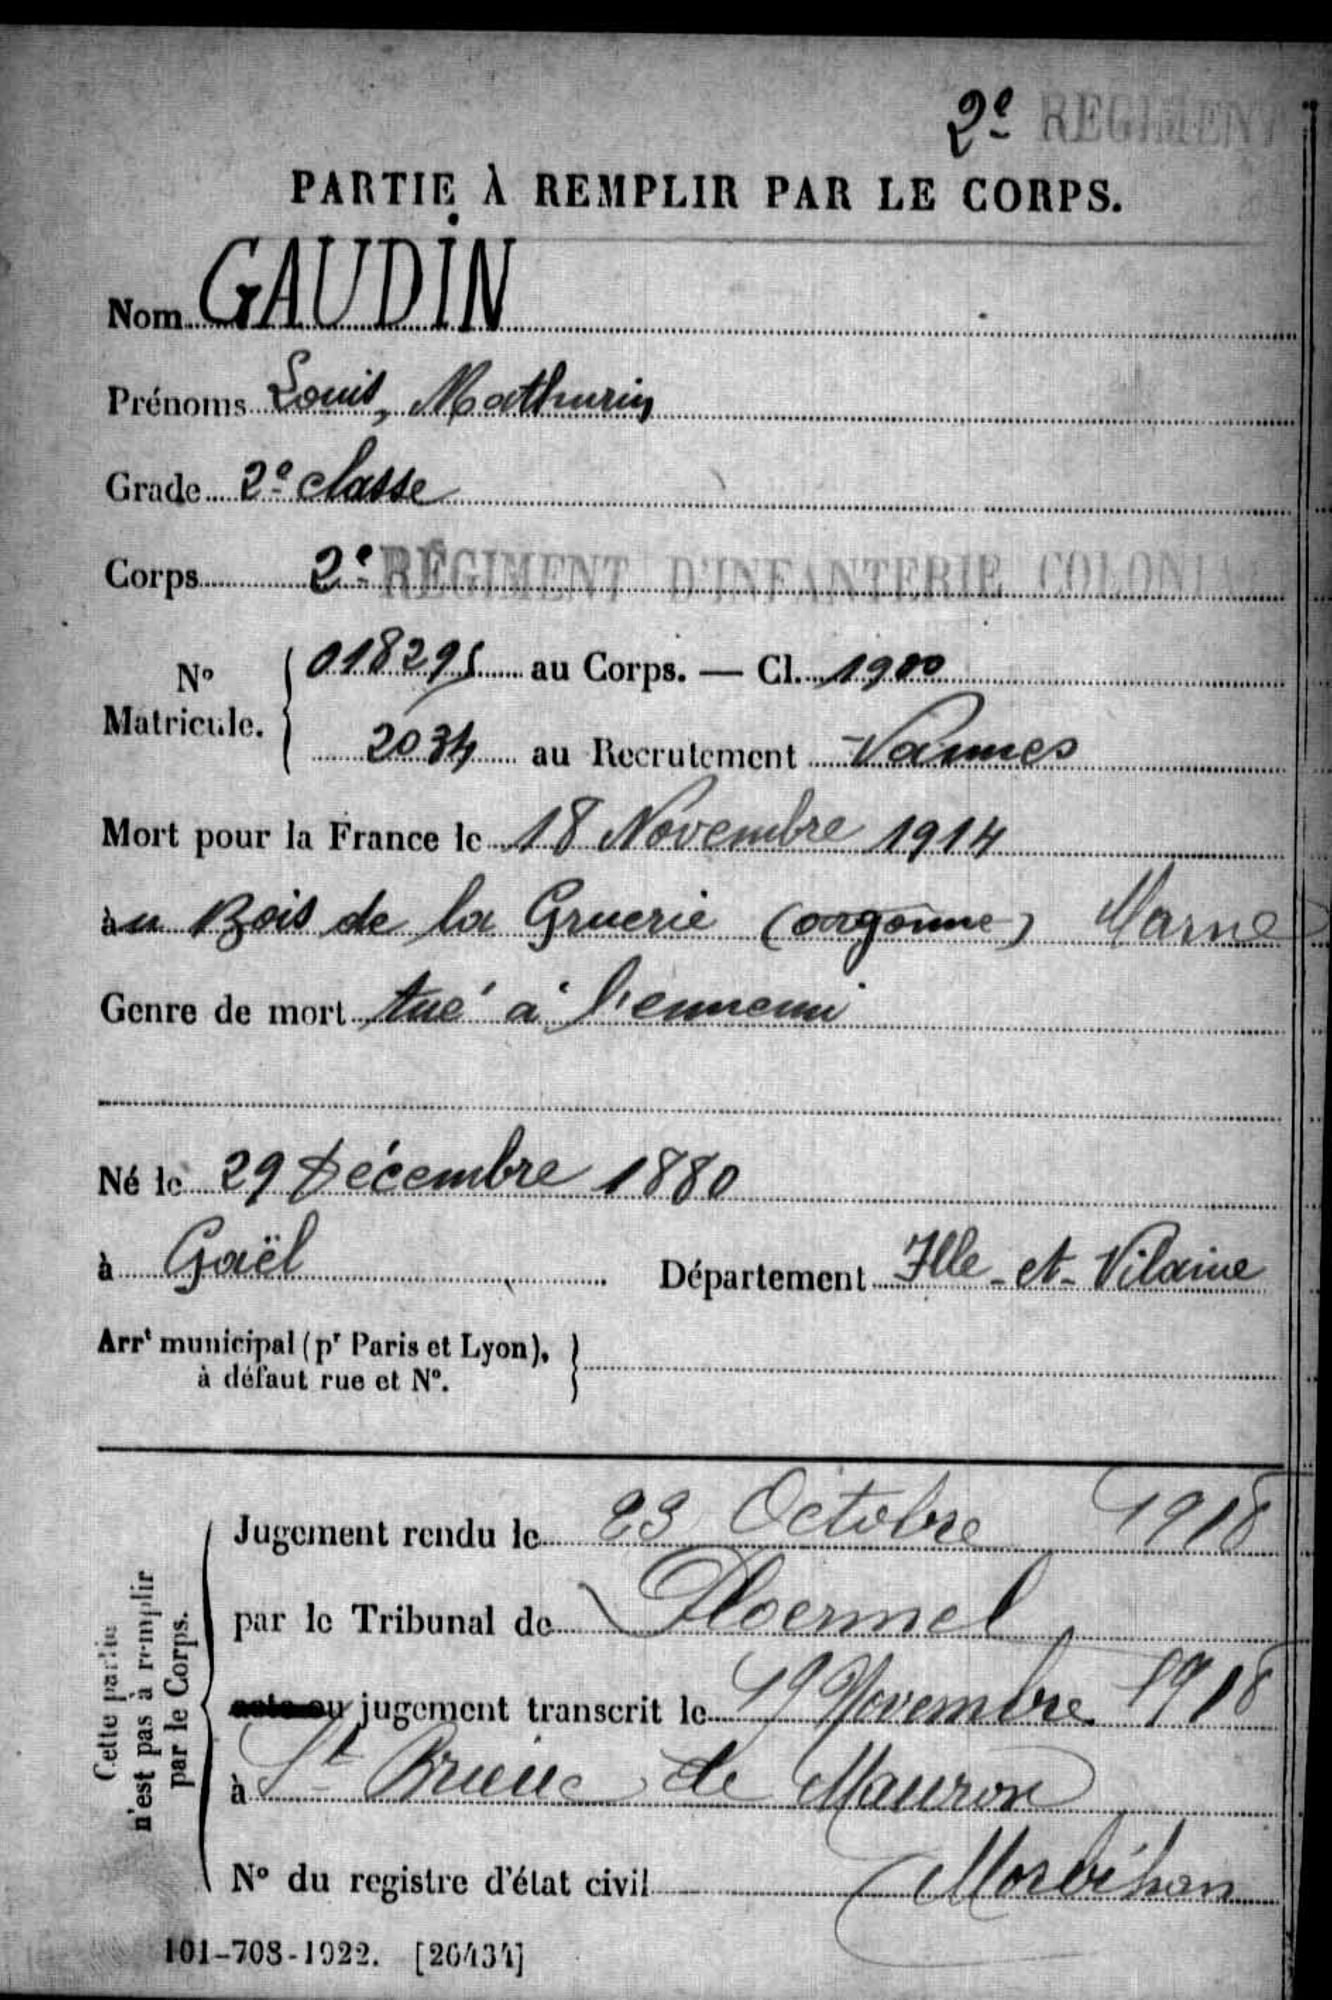 2e REGIMENT
PARTIE À REMPLIR PAR LE CORPS.
Nom GAUDIN
Prénoms Louis, Mathurin
Grade 2e classe
Corps 2e RÉGIMENT D'INFANTERIE COLONIA
No Matricule. { 018295 au Corps. — Cl. 1900
2034 au Recrutement Vannes
Mort pour la France le 18 Novembre 1914
àu Bois de la Gruerie (argonne) Marne
Genre de mort tué à l'ennemi
Né le 29 Décembre 1880
à Gaël Département Ille-et-Vilaine
Arrt municipal (pr Paris et Lyon), }
à défaut rue et No.
Cette partie
n'est pas à remplir
par le Corps.
Jugement rendu le 23 Octobre 1918
par le Tribunal de Ploermel
acte ou jugement transcrit le 19 Novembre 1918
à St Brieuc de Mauron
No du registre d'état civil Morbihan
101-708-1922. [26434]